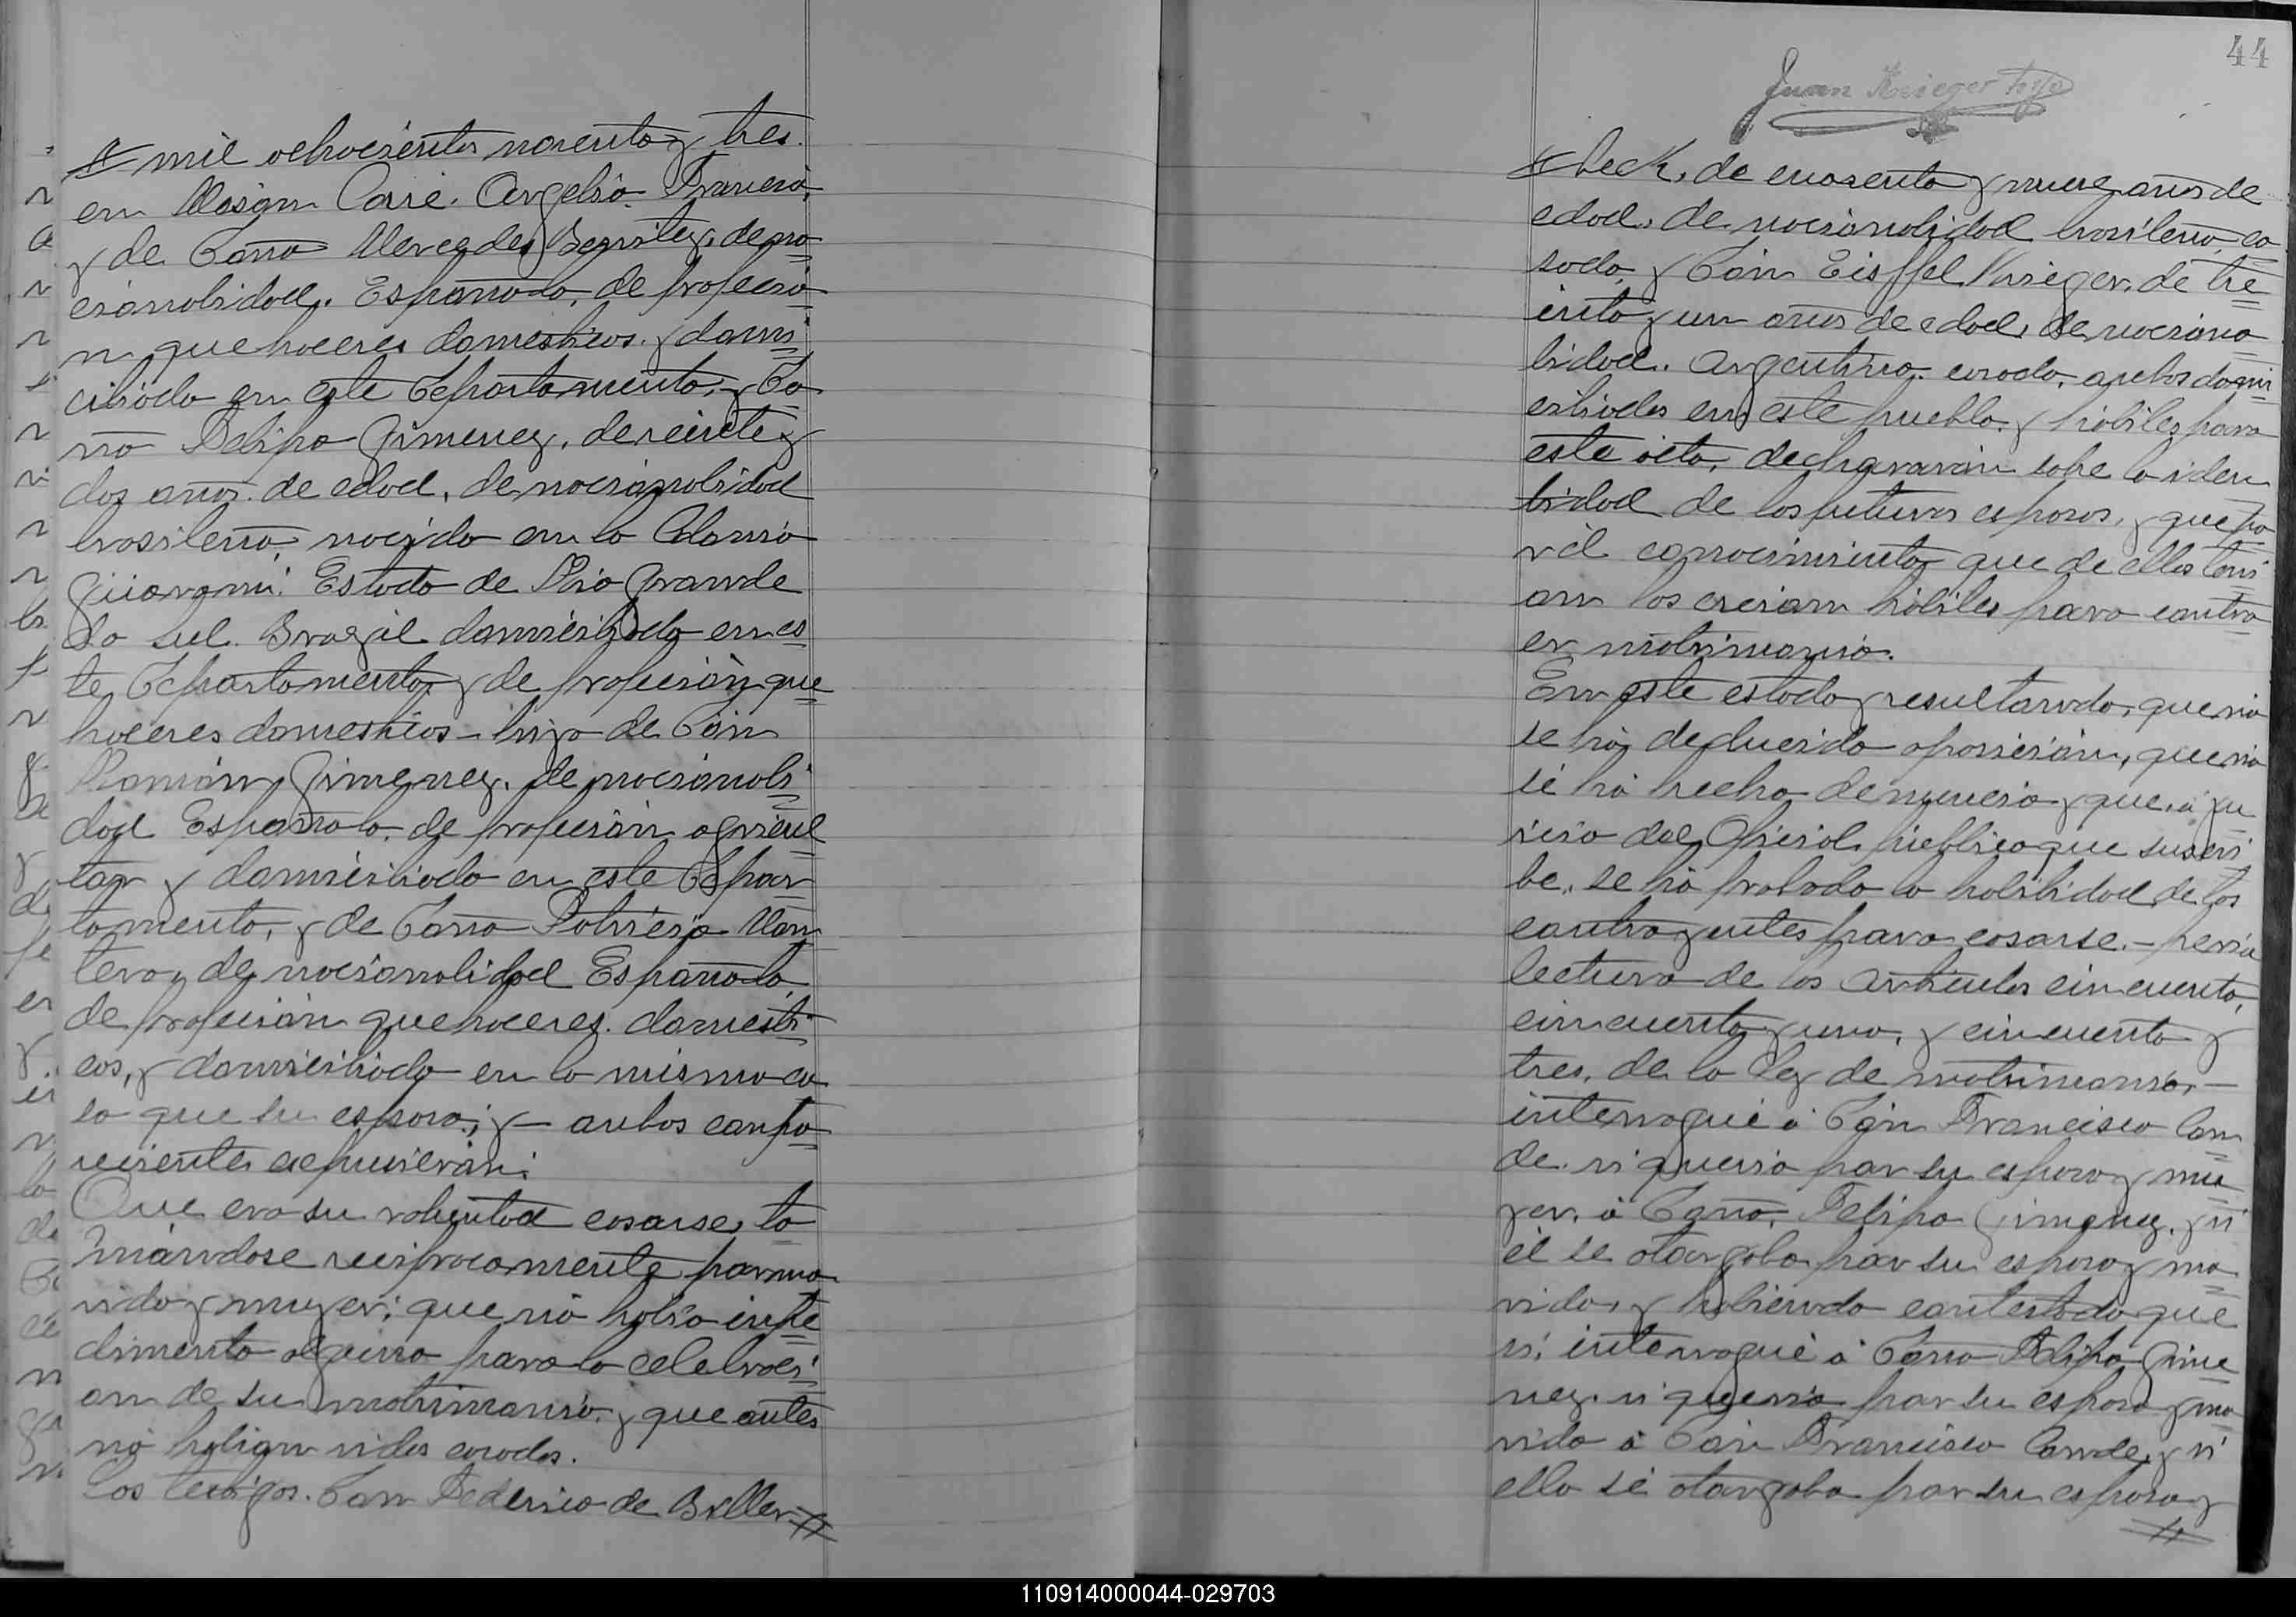 mil ochocientos noventa y tres.
en Masign Carré. Argelia. Francia,
y de Doña Mercedes Benitez, de na
cionalidad. Española, de profesió
n quehaceres domesticos. y domi
ciliada en este Departamento, y Do
ña Felipa Gimenez, de veinte y
dos años de edad, de nacionalidad
brasileña, nacida en la Colonia
Guaraní. Estado de Rio Grande
do sul. Brazil domiciliada en es
te, Departamento y de profesión que
haceres domesticos - hija de Don
Ramón Gimenez. de nacionali
dad Española. de profesión agricul
tor y domiciliado en este Depar
tamento, y de Doña Patricia Mon
tero, de nacionalidad Española,
de profesión quehaceres. domesti
cos, y domiciliada en la misma ca
sa que su esposo; y - ambos compa
recientes expusieron:
Que era su voluntad casarse, to
mándose reciprocamente por ma
rido y muger; que no había impe
dimento alguno para la celebraci
on de su matrimonio. y que antes
no habian sidos casados.
Los testigos. Don Federico de Biller
44
Juan Krieger hijo
beck, de cuarenta y nueve años de
edad, de nacionalidad brasileño, ca
sado, y Don Eisffel Krieger, de tre
inta y un años de edad, de naciona
lidad. Argentino. casado, ambos domi
ciliados en este pueblo. y hábiles para
este acto, declararán sobre la iden
tidad de los futuros esposos, y que po
r él conocimiento que de ellos teni
an los creian hábiles para contra
er matrimonio.
En este estado y resultando, que no
se há deducido oposición, que no
sé há hecho denuncia y que, á ju
icio del Oficial público que suscri
be, se há probado la habilidad de los
contrayentes para casarse. - previa
lectura de los artículos cincuenta,
cincuenta y uno, y cincuenta y
tres, de la Ley de matrimonio, -
interrogué á Don Francisco Con
de. si queria por su esposa y mu
ger, á Doña, Felipa Gimenez. y si
él se otorgaba por su esposo y ma
rido, y habiendo contestado que
si, interrogué á Doña Felipa Gime
nez. si queria por su esposo y ma
rido á Don Francisco Conde, y si
ella sé otorgaba por su esposa y
110914000044-029703